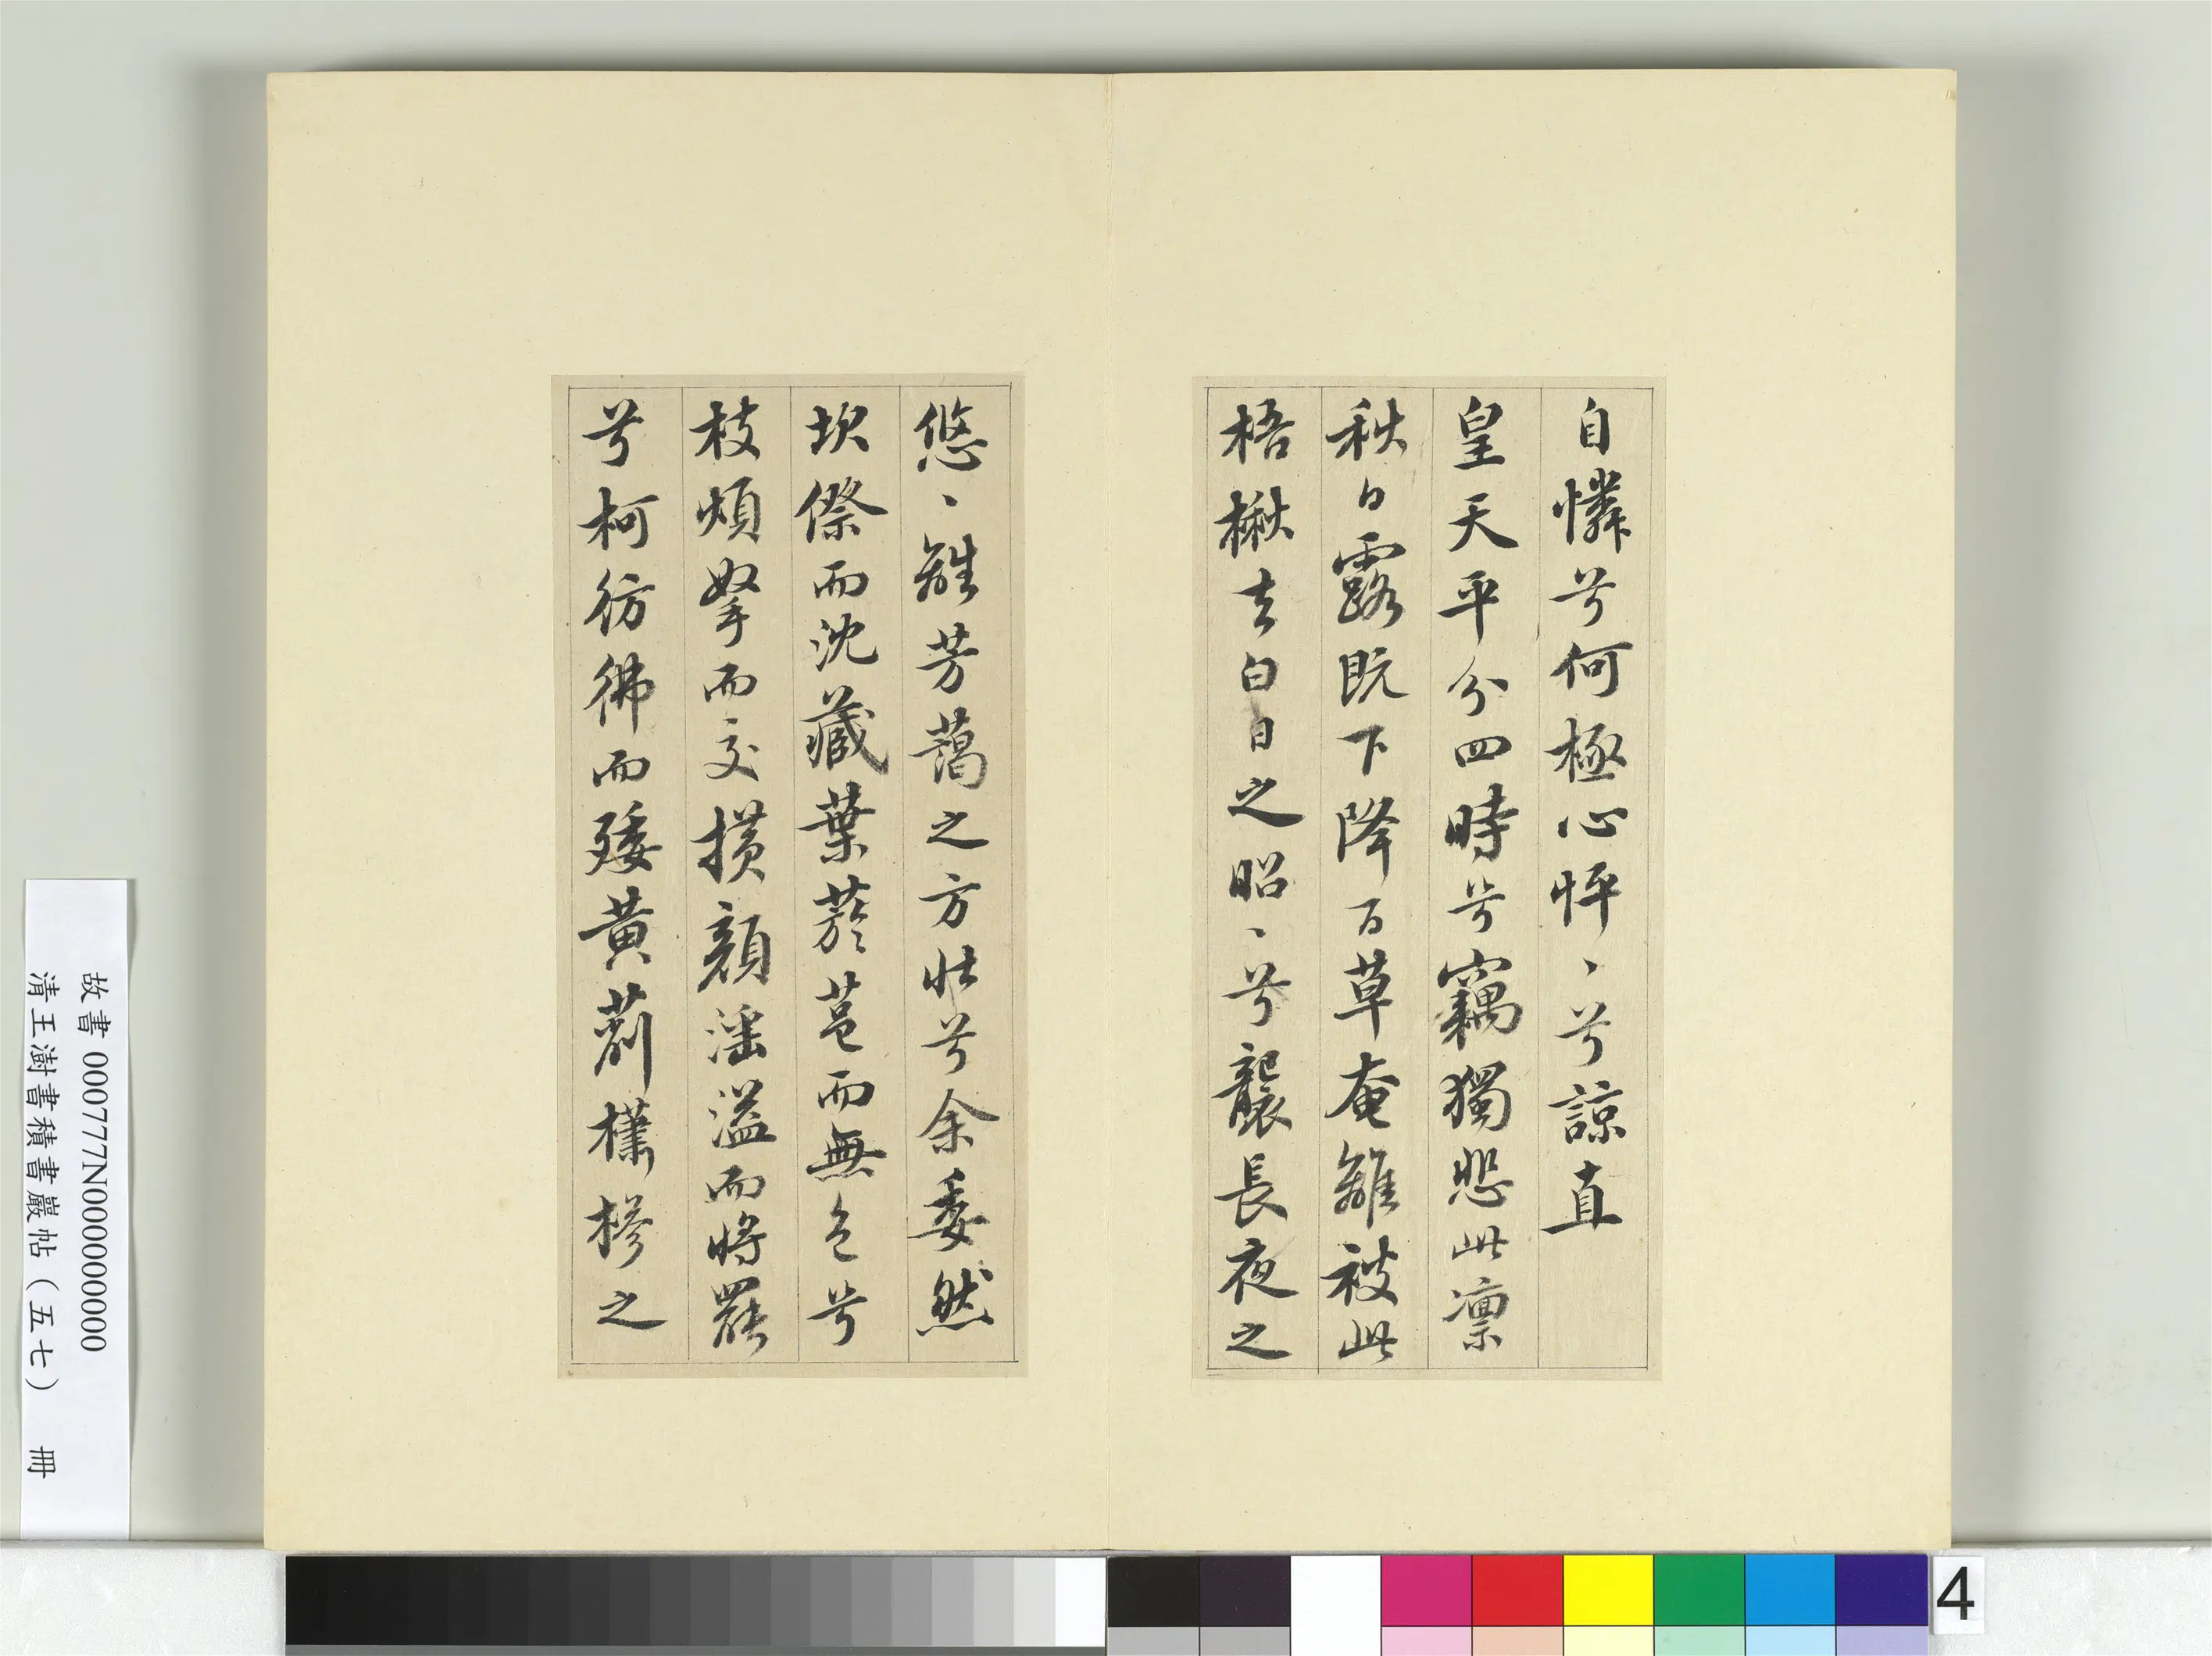 自憐兮何極心怦丶兮諒直
皇天平分四時兮竊獨悲此凛
秋白露既下降百草奄離被此
梧楸去白日之昭丶兮襲長夜之
悠丶離芳藹之方壯兮余委然
坎傺而沈藏葉菸莒而無色兮
枝煩挐而交横顔淫溢而將罷
兮柯彷彿而矮黃萷櫹槮之
故書 000777N000000000
清王澍書積書巖帖（五七） 冊
4